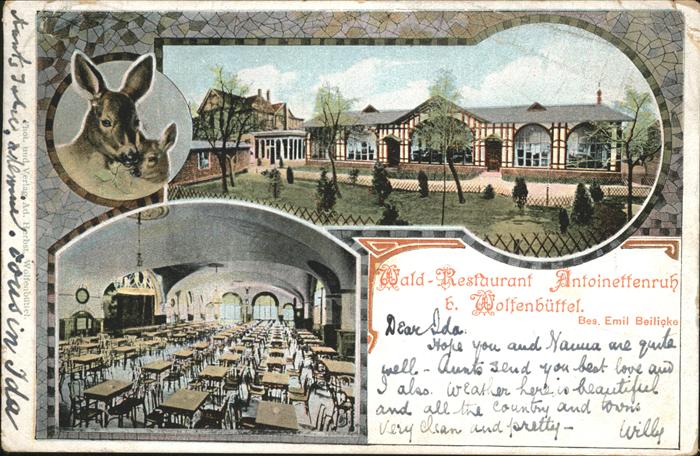 Wald-Restaurant Antoinettenruh
b. Wolfenbüttel.
Bes. Emil Beilicke
Dear Ida.
Hope you and Nanna are quite
well - Aunts send you best love and
I also. Weather here is beautiful
and all the country and towns
very clean and pretty -
Willy
Phot. und Verlag Ad. Herbst, Wolfenbüttel.
cousin Ida